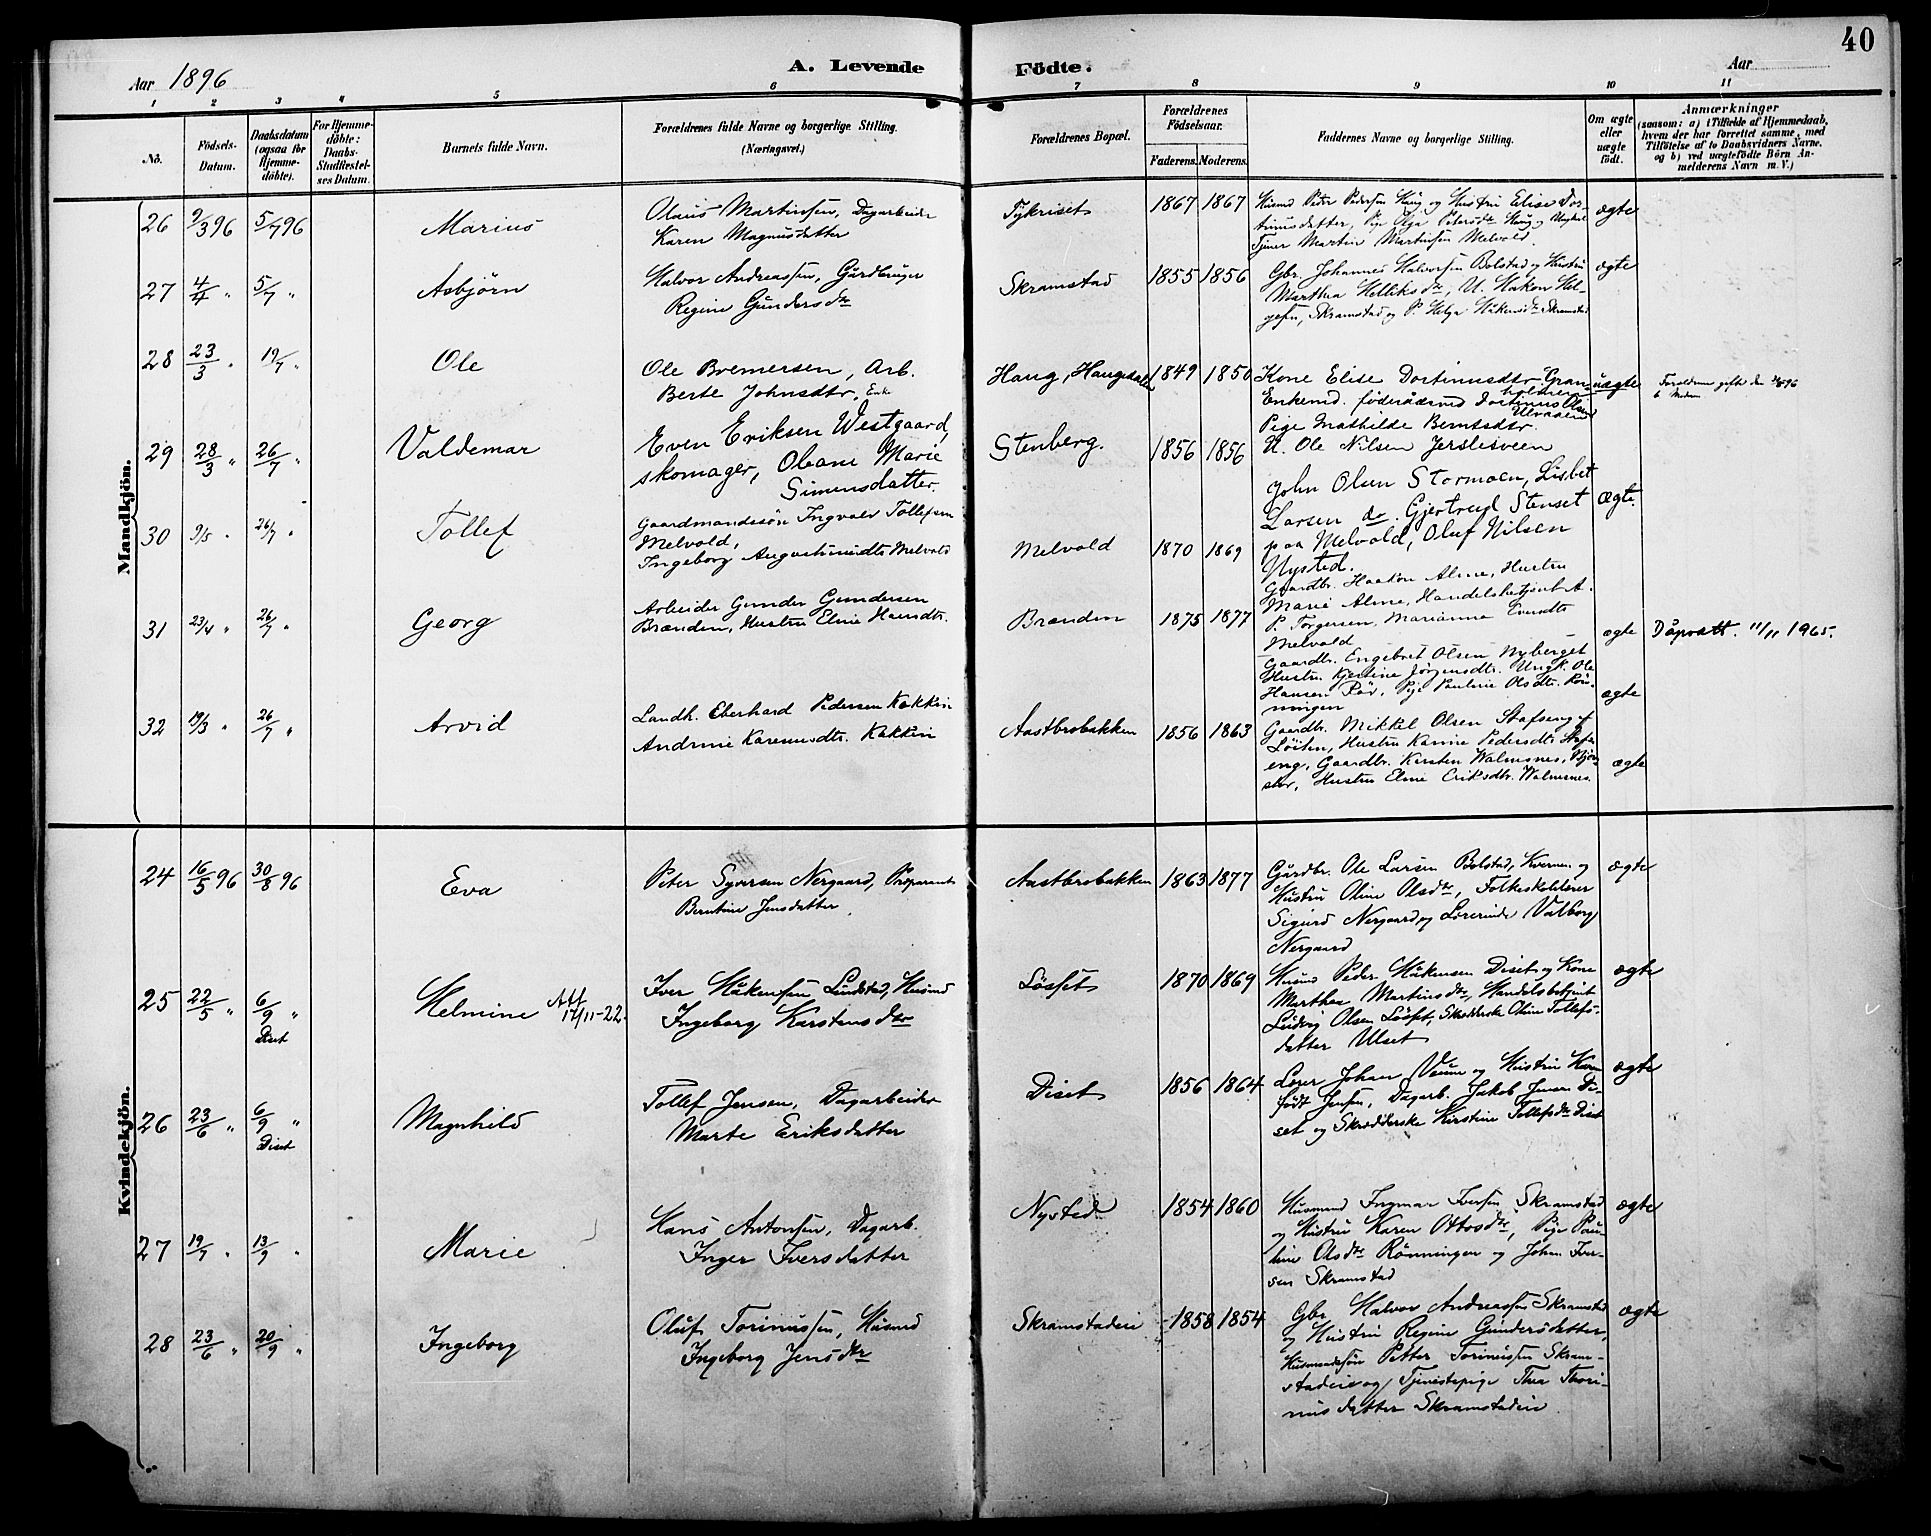 40
Aar 1896
A. Levende
Födte.
Aar
1 2 3 4 5 6 7 8 9 10 11
No.
Födsels-
Datum.
Daabsdatum
(ogsaa for
Hjemme-
döbte).
For Hjemme-
döbte:
Daabs-
Stadfæstel-
ses Datum.
Barnets fulde Navn.
Forældrenes fulde Navne og borgerlige Stilling.
(Næringsvei.)
Forældrenes Bopæl.
Forældrenes
Födselsaar.
Faderens. Moderens.
Faddernes Navne og borgerlige Stilling.
Om ægte
eller
uægte
födt.
Anmærkninger
(saasom: a) i Tilfælde af Hjemmedaab,
hvem der har forrettet samme, med
Tilföielse af to Daabsvidners Navne,
og b) ved uægtefödte Börn An-
melderens Navn m. V.)
Mandkjön.
26 9/3 96 5/7 96 Marius
Olaus Martinsen, Dagarbeider
Karen Magnusdatter
Tykriset 1867 1867
Husmd Peder Pedersen Haug og Hustru Elise Dor-
tinusdatter, Pige Olga Petersdtr Haug og
Tjener Martin Martinsen Melvold.
ægte
27 4/4 " 5/7 " Asbjörn
Halvor Andreassen, Gårdbruger
Regine Gundersdtr
Skramstad 1855 1856
Gbr. Johannes Halvorsen Bolstad og Hustru
Marthea Helliksdtr, U. Håkon Hel-
gesen, Skramstad og P. Helga Håkensdtr Skramstad
ægte
28 23/3 " 19/7 " Ole
Ole Bremersen, Arb.
Berte Johnsdtr, Enke
Haug, Haugedalen 1849 1850
Kone Elise Dortinusdtr. Gran-
holmen
Enkemd. föderåasmd Dortinus Olsen
Ulvaaen
Pige Mathilde Berntsdtr.
U. Ole Nilsen Jerslesveen
uægte
Forældrene gifte den
29 28/3 " 26/7 " Valdemar
Even Eriksen Westgaard,
skomager, Oleane Marie
Simensdatter.
Stenberg. 1856 1856
John Olsen Stormoen, Lisbet
Larsen do. Gjertrud Stenset
paa Melvold, Oluf Nilsen
Nysted.
Ægte.
30 9/5 " 26/7 " Tollef
Gaardmandssön Ingvald Tollefsen
Melvold,
Ingeborg Augustinusdtr Melvold
Melvold 1870 1869
Gaardbr. Haakon Alme, Hustru
Marie Alme, Handelsbetjent A.
P. Torgersen, Marianne Evensdtr
Melvold
ægte
31 23/4 " 26/7 " Georg
Arbeider Gunder Gundersen
Brænden, Hustru Eline Hansdtr.
Brænden 1875 1877
Gaardbr. Engebret Olsen Nyberget
Hustru Kjerstine Jörgensdtr. Ungk. Ole
Hansen Rör, Pige Pauline Olsdtr. Rön-
ningen
ægte
Dåpsatt. 11/11 1965.
32 19/3 " 26/7 " Arvid
Landh. Eberhard Pedersen Kakkin
Andrine Karenusdtr. Kakkin
Aastbrobakken 1856 1863
Gaardbr. Mikkel Olsen Stafseng af
Löiten, Hustru Karine Pedersdtr. Stafs-
eng, Gaardbr. Kirsten Walmsnes,
Hustru Eline Eriksdtr. Walmsnes.
ægte
Kvindekjön.
24 16/5 96 30/8 96 Eva
Peter Syversen Nergaard, Præparant
Berntine Jensdatter
Aastbrobakken 1863 1877
Gårdbr. Ole Larsen Bolstad, Kvernen og
Hustru Oline Olsdtr, Folkeskolelærer
Sigurd Nergaard og Lærerinde Valborg
Nergaard
ægte
25 22/5 " 6/9 " Diset Helmine Att 17/11-22.
Iver Håkensen Lundstad, Husmd
Ingeborg Karstensdtr
Lösset 1870 1869
Husmd Peder Håkensen Diset og Kone
Marthea Martinsdtr, Handelsbetjent
Ludvig Olsen Lösset, Skrædderske Oline Tollefs-
datter Ulset
ægte
26 23/6 " 6/9 " Diset Magnhild
Tollef Jensen, Dagarbeider
Marte Eriksdatter
Diset 1856 1864
Lærer Johan Veum og Hustru Karen
födt Jensen, Dagarb. Jakob Jensen Di-
set og Skrædderske Kirstine Tollefsdtr Diset
ægte
27 19/7 " 13/9 " Marie
Hans Antonsen, Dagarb.
Inger Iversdatter
Nysted 1854 1860
Husmand Ingmar Iversen Skramstad
og Hustru Karen Ottosdtr, Pige Pau-
line Olsdtr Rönningen og Johan Iver-
sen Skramstad
ægte
28 23/6 " 20/9 " Ingeborg
Oluf Torinussen, Husmd
Ingeborg Jensdtr
Skramstadeie 1858 1854
Gbr Halvor Andreassen Skramstad
og Hustru Regine Gundersdatter,
Husmandssön Petter Torinussen Skram-
stadeie og Tjenestepige Thea Thori-
nusdatter Skramstadeie
ægte